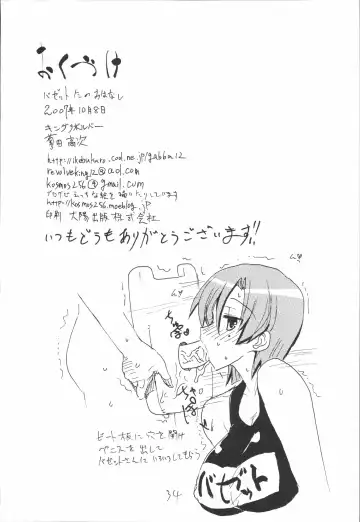 おくづけ
バゼットさんのおはなし
2007年10月8日
キングリボルバー
菊田高次
http://ikebukuro.cool.ne.jp/gabba12
revolveking12@aol.com
kosmos256@gmail.com
ブログでえっちな絵を描いたりしています
http://kosmos256.moeblog.jp
印刷 太陽出版株式会社
いつもどうもありがとうございます!!
ムワ
ムワ
ビート板に穴を開け
ペニスを出して
バゼットさんに
してもらう
バゼット
34